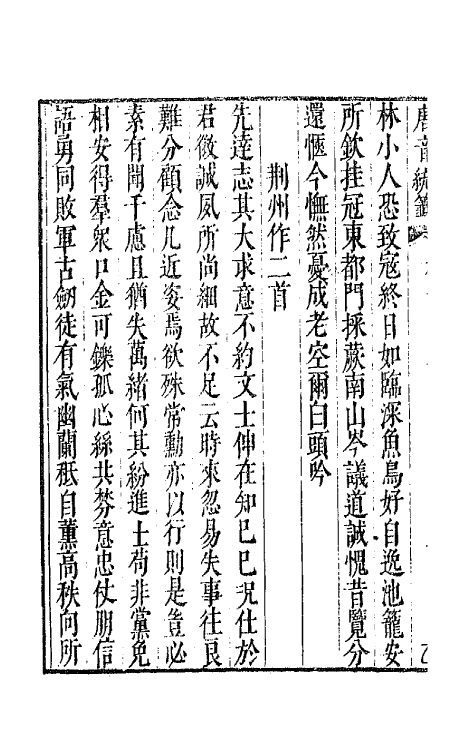 唐音統籤
林小人恐致寇終日如臨深魚鳥好自逸池籠安
所欽挂冠東都門採蕨南山岑議道誠愧昔覽分
還愜今憮然憂成老空爾白頭吟
荆州作二首
先達志其大求意不約文士伸在知己已况仕於
君微誠夙所尚細故不足云時來忽易失事往良
難分顧念凡近姿焉欲殊常勳亦以行則是豈必
素有聞千慮且猶失萬緒何其紛進士苟非黨免
相安得羣衆口金可鑠孤心絲共棼意忠仗朋信
語勇同敗軍古劒徒有氣幽蘭秪自薰高秩向所